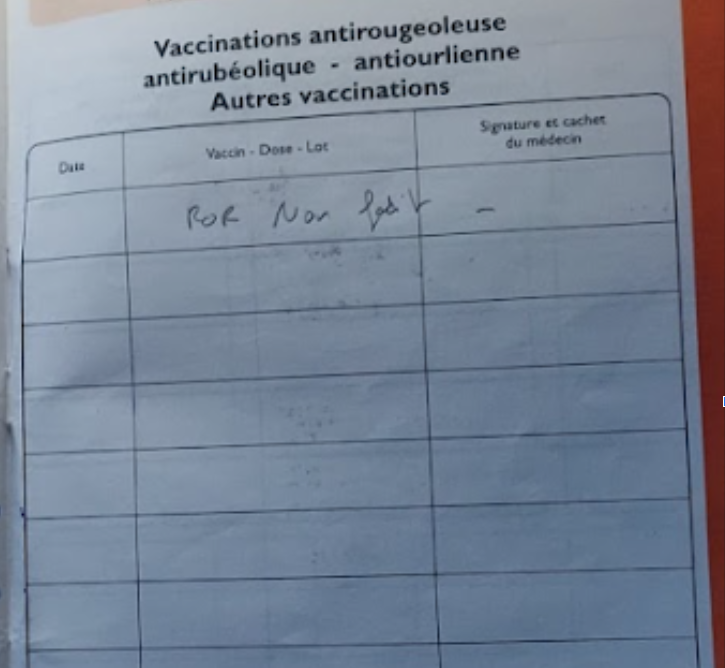 Vaccinations antirougeoleuse
antirubéolique - antiourlienne
Autres vaccinations
Date
Vaccin - Dose - Lot
Signature et cachet
du médecin
ROR Non fait -